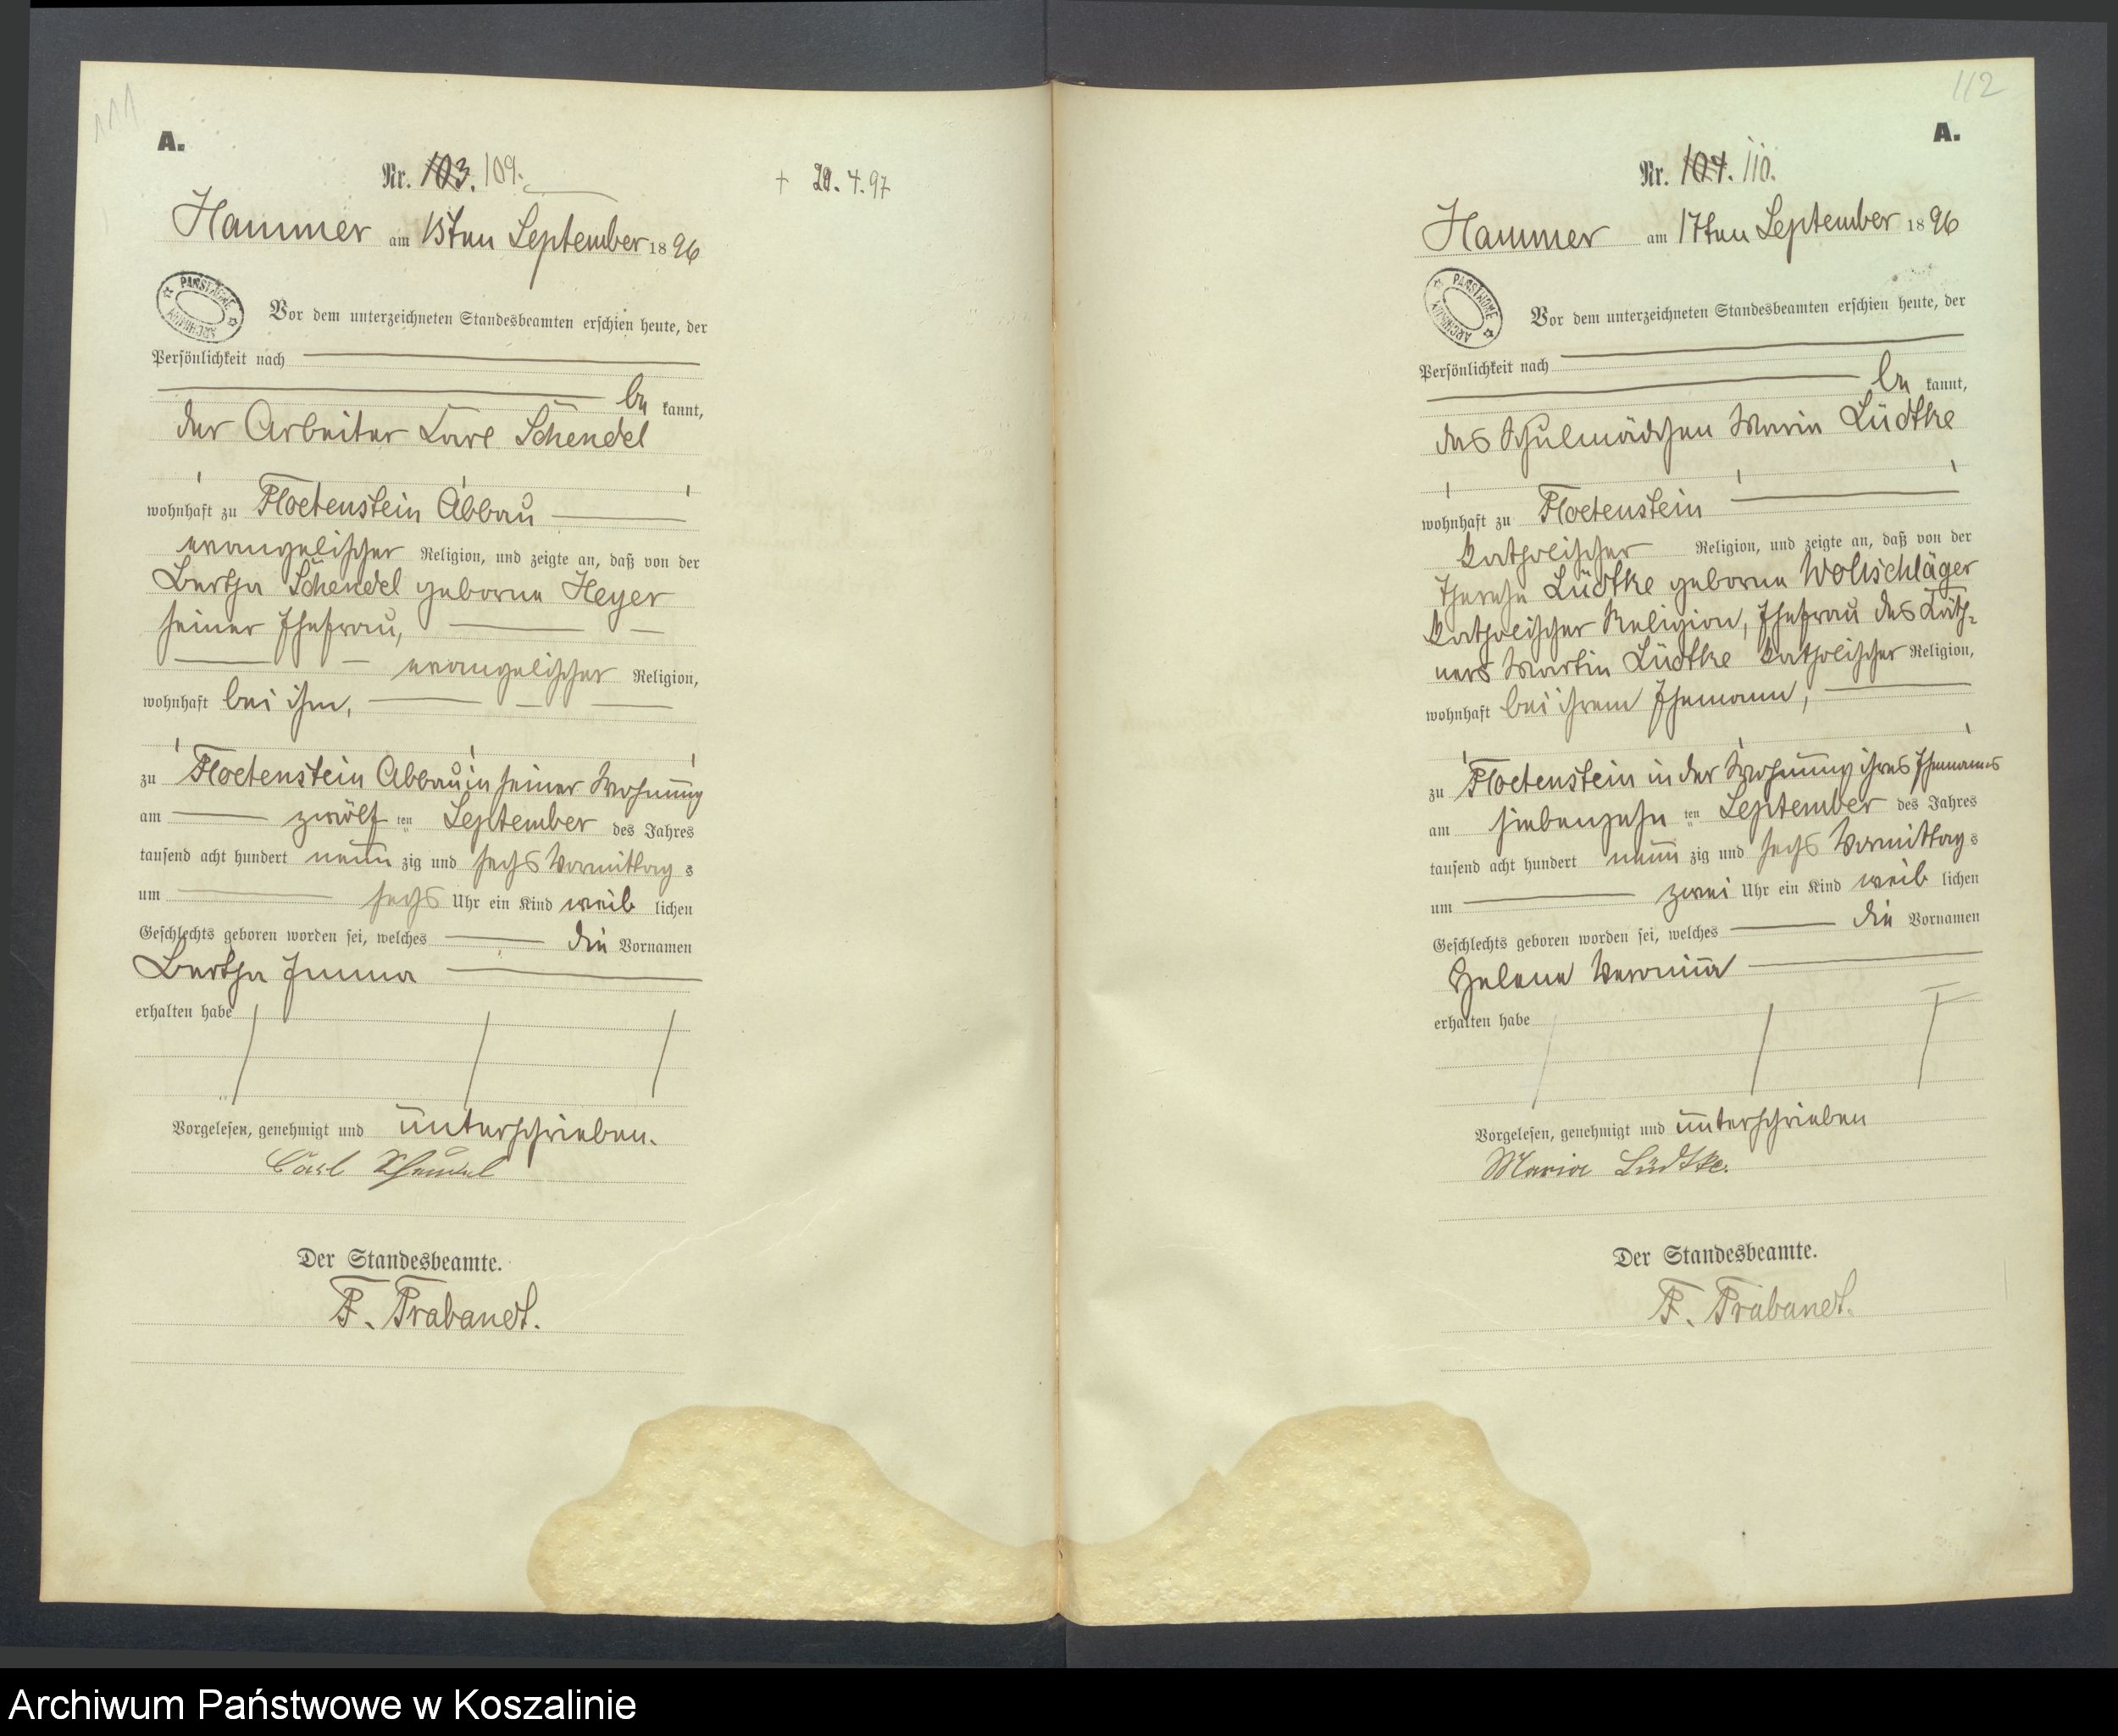 111
A.
Nr. 103. 109.
+ 20. 4. 97
Hammer am 15ten September 1896
PAŃSTWOWE ARCHIWUM
Vor dem unterzeichneten Standesbeamten erschien heute, der
Persönlichkeit nach
be kannt,
der Arbeiter Carl Schendel
wohnhaft zu Floetenstein Abbau
evangelischer Religion, und zeigte an, daß von der
Bertha Schendel geborne Heyer
seiner Ehefrau,
evangelischer Religion,
wohnhaft bei ihm,
zu Floetenstein Abbau in seiner Wohnung
am zwölf ten September des Jahres
tausend acht hundert neun zig und sechs Vormittag s
um sechs Uhr ein Kind weib lichen
Geschlechts geboren worden sei, welches die Vornamen
Bertha Emma
erhalten habe
Vorgelesen, genehmigt und unterschrieben.
Carl Schendel
Der Standesbeamte.
F. Trabandt.
112
A.
Nr. 104. 110.
Hammer am 17ten September 1896
PAŃSTWOWE ARCHIWUM
Vor dem unterzeichneten Standesbeamten erschien heute, der
Persönlichkeit nach
be kannt,
das Schulmädchen Maria Lüdtke
wohnhaft zu Floetenstein
katholischer Religion, und zeigte an, daß von der
Therese Lüdtke geborne Wollschläger
katholischer Religion, Ehefrau des Käth-
ners Martin Lüdtke katholischer Religion,
wohnhaft bei ihrem Ehemann,
zu Floetenstein in der Wohnung ihres Ehemannes
am siebenzehn ten September des Jahres
tausend acht hundert neun zig und sechs Vormittag s
um zwei Uhr ein Kind weib lichen
Geschlechts geboren worden sei, welches die Vornamen
Helene Veronika
erhalten habe
Vorgelesen, genehmigt und unterschrieben
Maria Lüdtke.
Der Standesbeamte.
F. Trabandt.
Archiwum Państwowe w Koszalinie